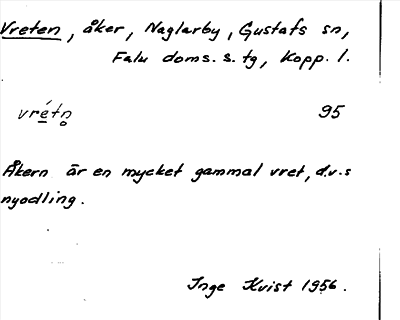 Vreten, åker, Naglarby, Gustafs sn,
Falu doms. s. tg, Kopp. l.
vré̲tn̥ 95
Åkern är en mycket gammal vret, d.v.s
nyodling.
Inge Kvist 1956.